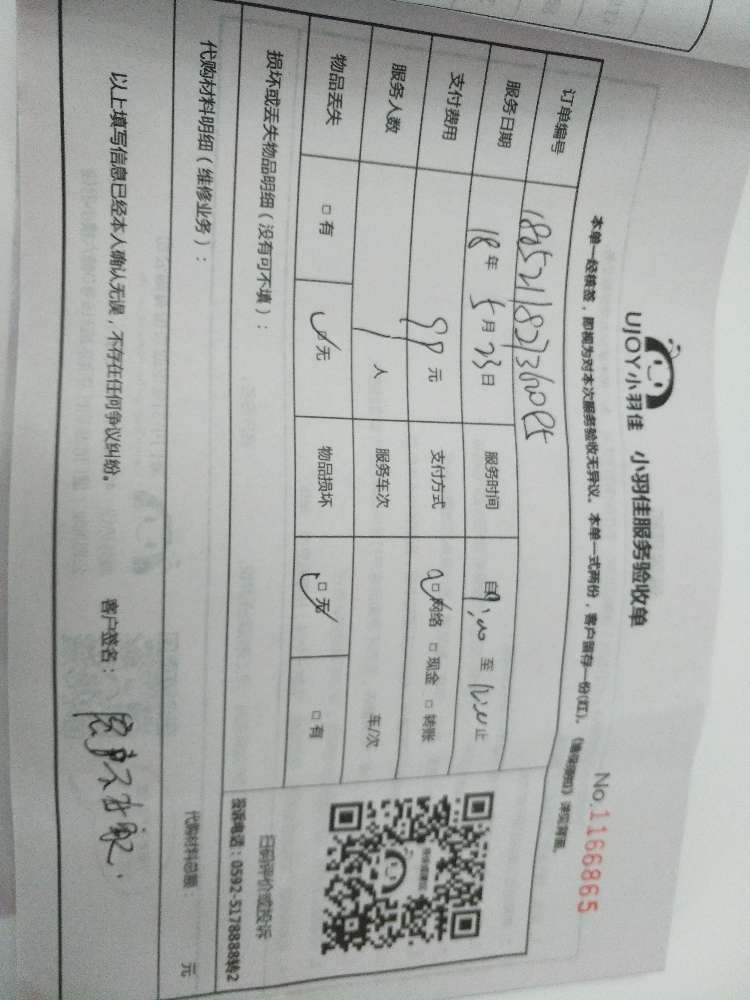 UJOY小羽佳 小羽佳服务验收单
No.1166865
本单一经核签，即视为对本次服务验收无异议。本单一式两份，客户留存一份(红)。
订单编号
服务日期 18年 5月 23日 服务时间 自9:00 至 12:00止
支付费用 99元 支付方式 □网络 □现金 □转账
服务人数 1人 服务车次 车/次
物品丢失 □有 □无 物品损坏 □无 □有
损坏或丢失物品明细（没有可不填）：
扫码评价或投诉
投诉电话：0592-5178888转2
代购材料明细（维修业务）：
代购材料总额： 元
以上填写信息已经本人确认无误，不存在任何争议纠纷。 客户签名：